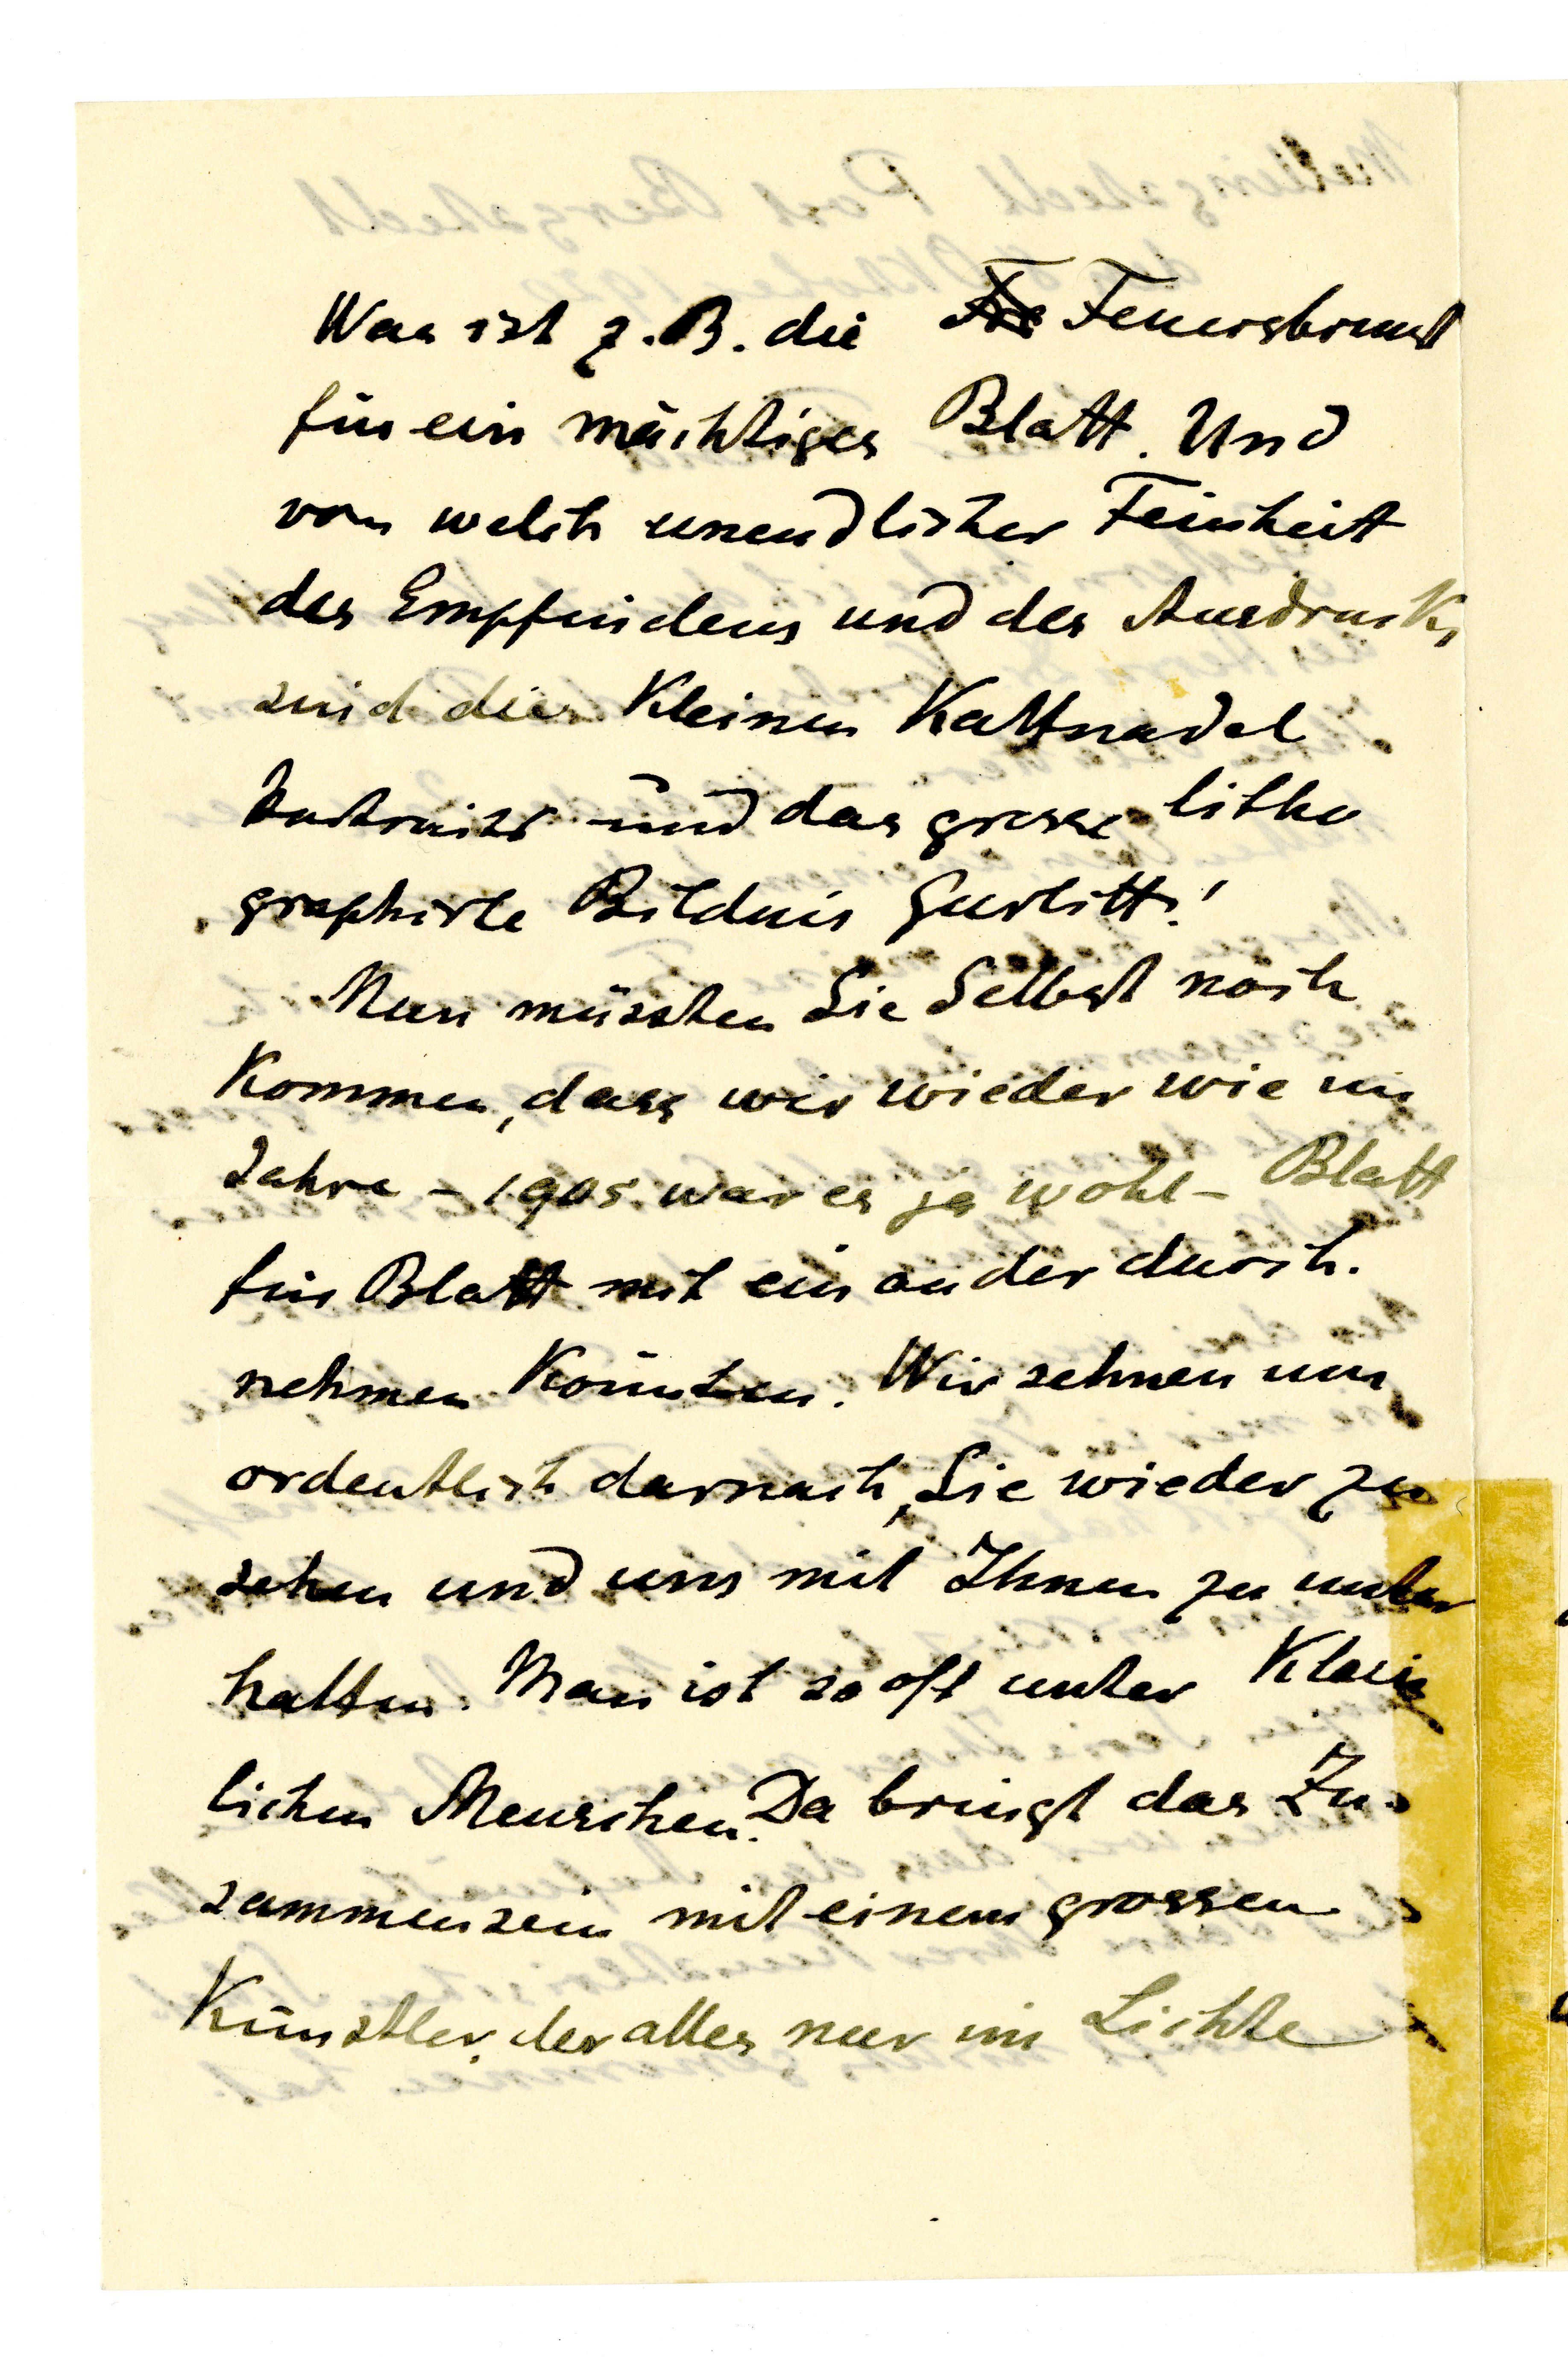 Was ist z. B. die Feuersbrunst
für ein mächtiges Blatt. Und
von welch unendlicher Feinheit
des Empfindens und des Ausdrucks
sind die Kleinen Kaltnadel
und das grosse litho
graphirte Bildnis Gurlitts!
Nun müssten Sie Selbst noch
Kommen, dass wir wieder wie im
Jahre - 1905 war es ja wohl - Blatt
für Blatt mit ein ander durch.
nehmen Könnten. Wir sehnen uns
ordentlich darnach, Sie wieder zu
sehen und uns mit Ihnen zu unter
halten. Man ist so oft unter Klein
lichen Menschen. Da bringt das Zu-
sammensein mit einem grossen
Künstler, der alles nur im Lichte